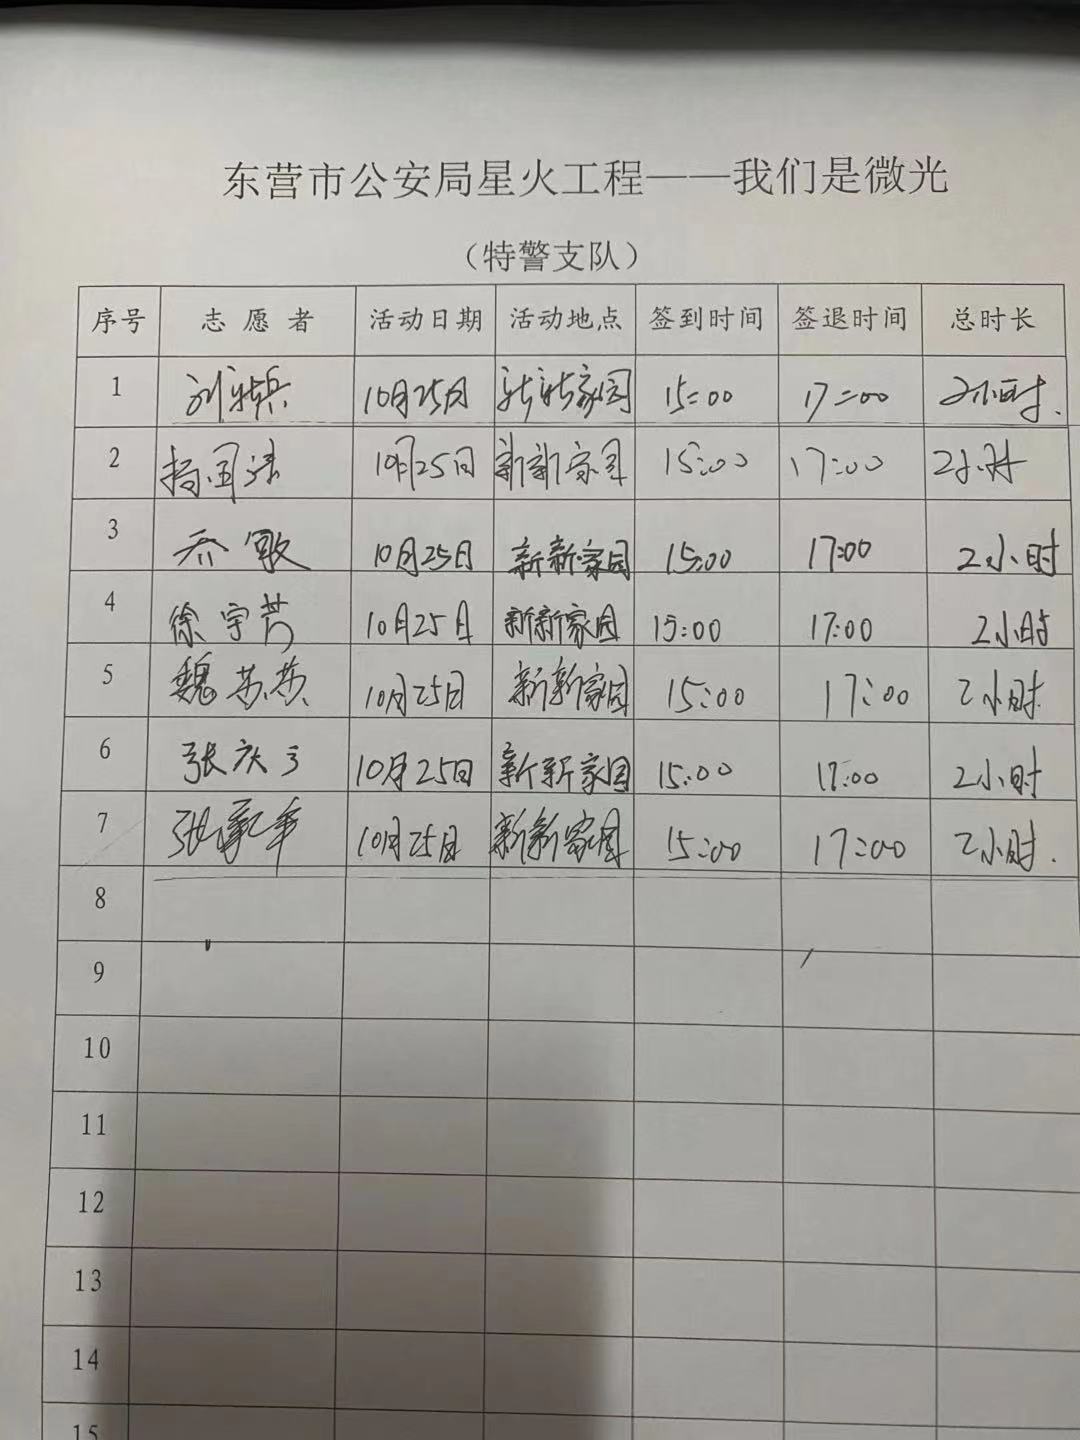 东营市公安局星火工程——我们是微光
（特警支队）
序号 志愿者 活动日期 活动地点 签到时间 签退时间 总时长
1 刘 兵 10月25日 新新家园 15:00 17:00 2小时.
2 杨国 10月25日 新新家园 15:00 17:00 2小时
3 乔敏 10月25日 新新家园 15:00 17:00 2小时
4 徐宇芳 10月25日 新新家园 15:00 17:00 2小时
5 魏苏苏 10月25日 新新家园 15:00 17:00 2小时
6 张庆 10月25日 新新家园 15:00 17:00 2小时
7 张 军 10月25日 新新家园 15:00 17:00 2小时.
8
9
10
11
12
13
14
15